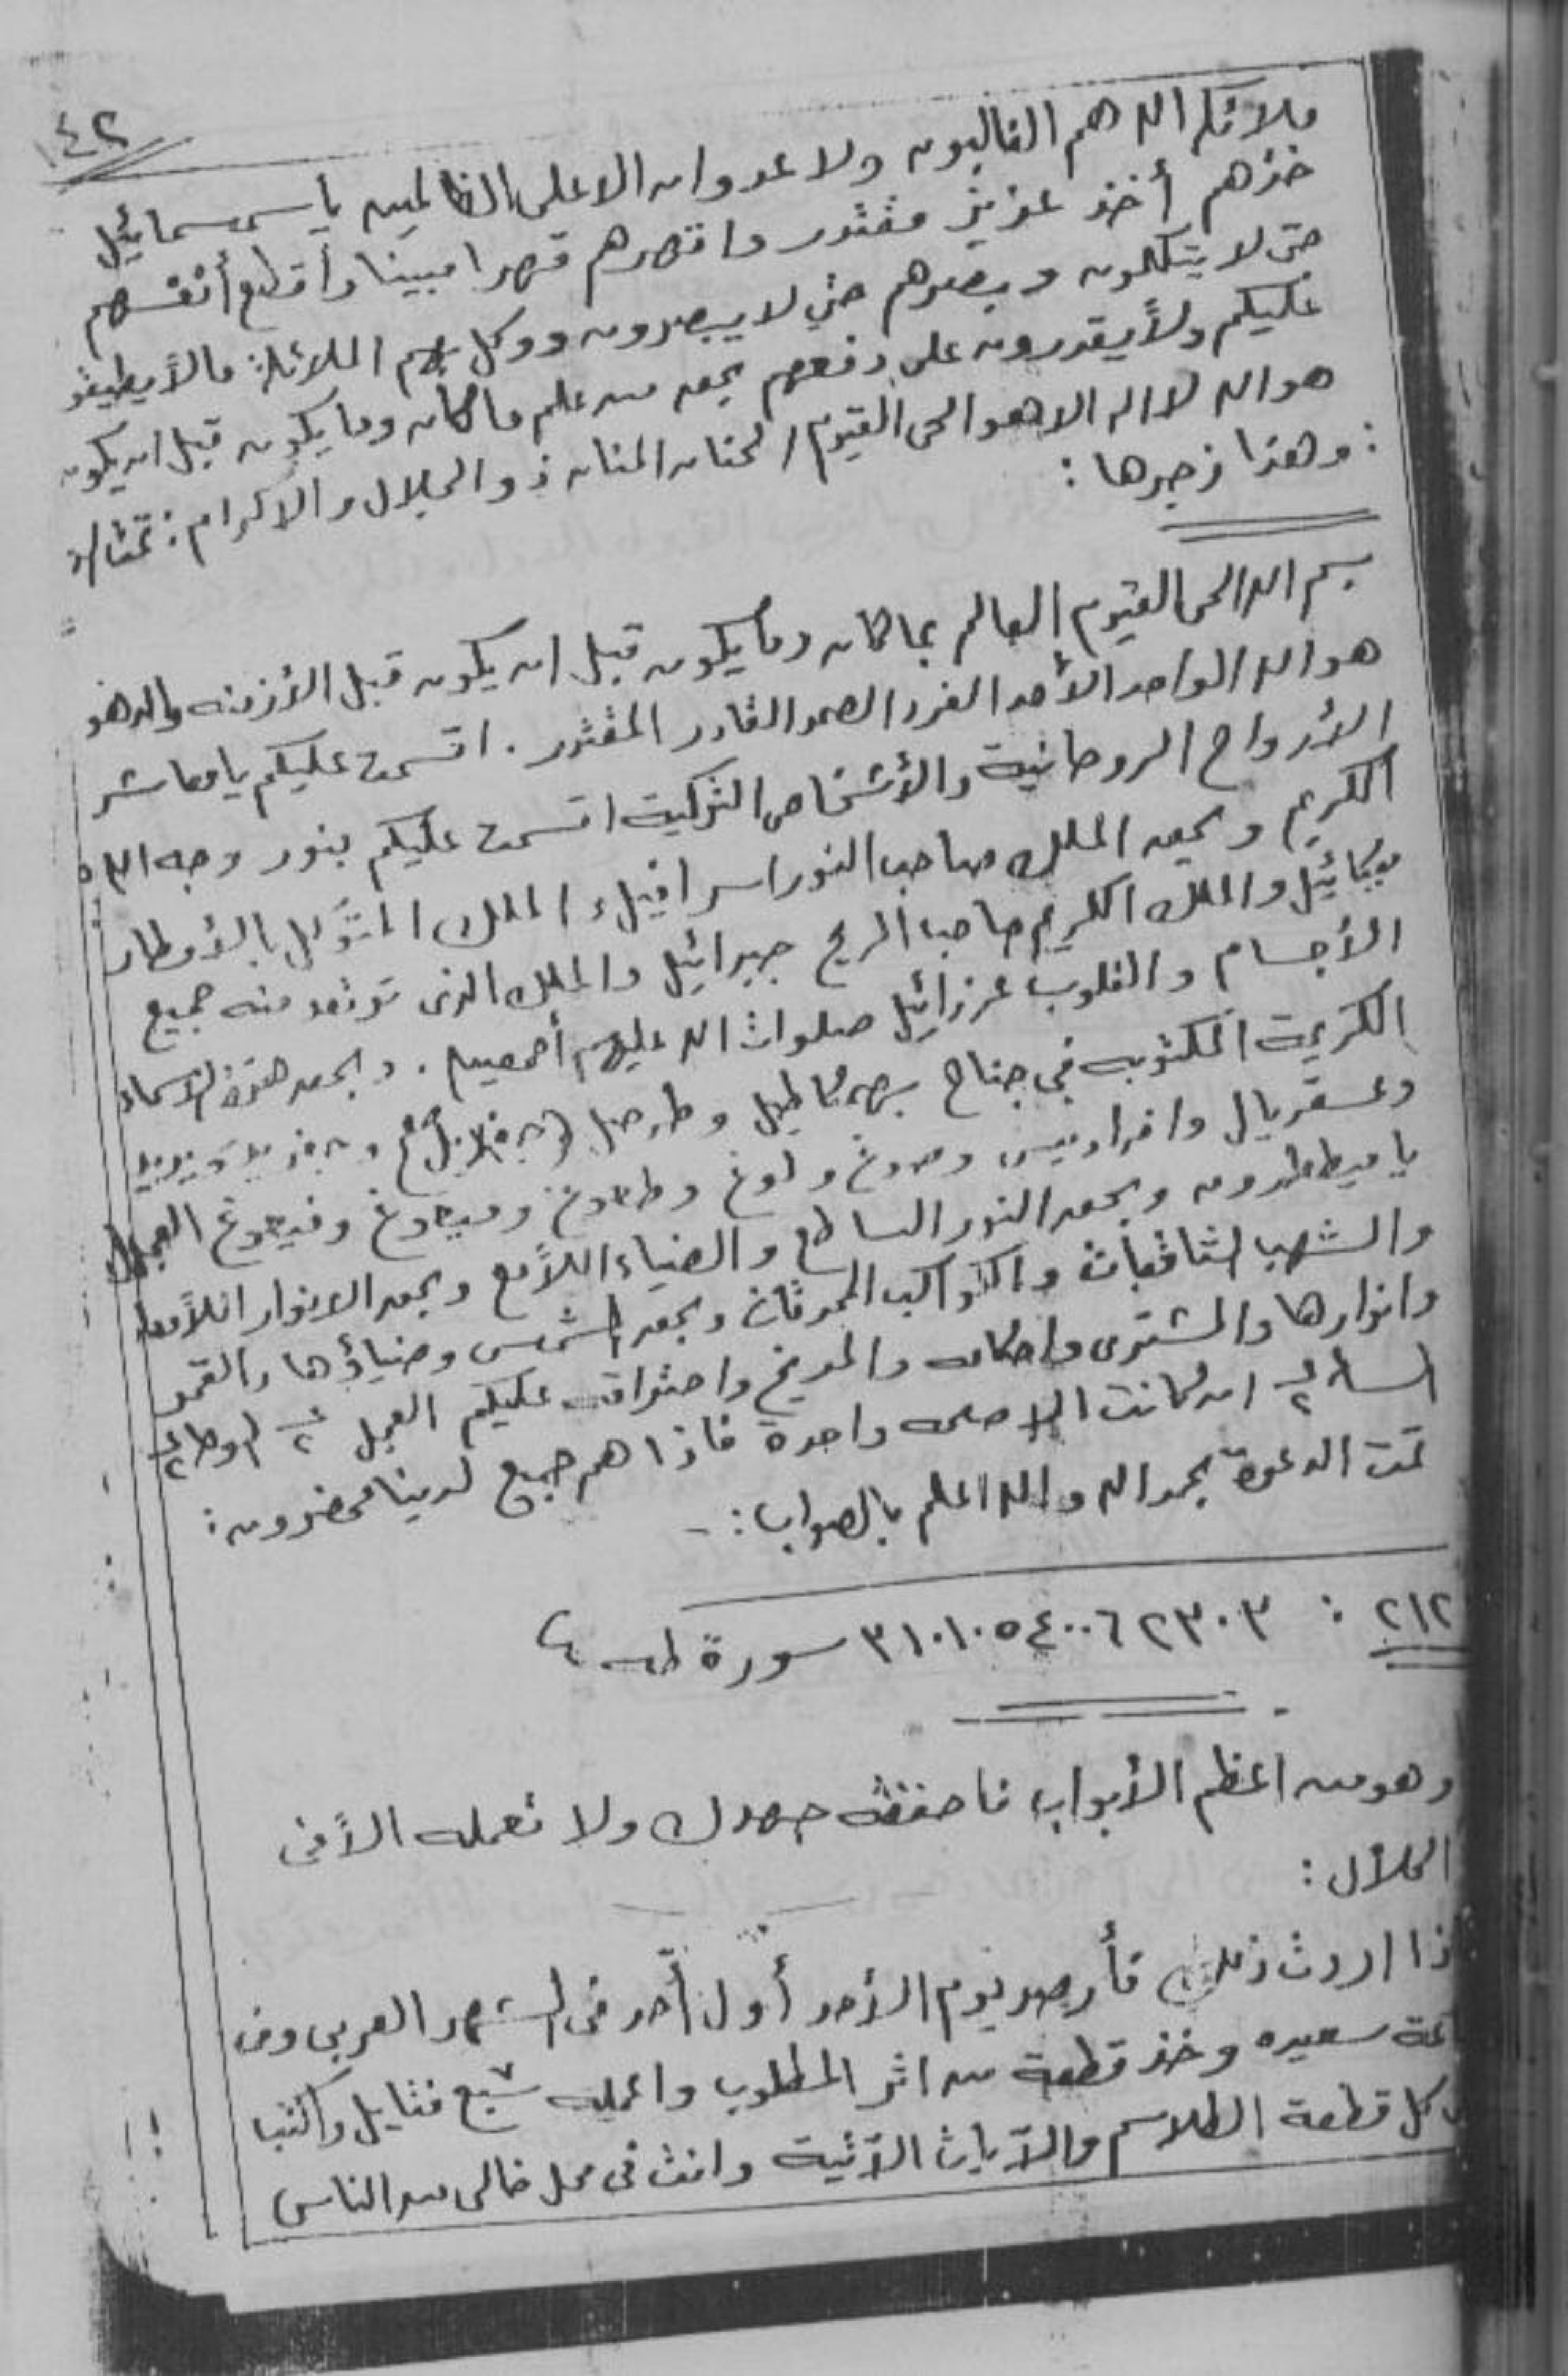 ١٤٢
ملائكة الله هم الغالبون ولا عدوان الا على الظالمين يا سمسمائيل
خذهم أخذ عزيز مقتدر واقهرهم قهرا مبينا وأقطع أنفسهم
حتى لا يتكلمون وبصرهم حتى لا يبصرون ووكل بهم الملائكة مالا يطيقو
عليكم ولا يقدرون على دفعهم بحق من علم ما كان وما يكون قبل ان يكون
هو الله لا اله الا هو الحى القيوم الحنان المنان ذو الجلال والاكرام :
: وهذا زجرها :
بسم الله الحى القيوم العالم بما كان وما يكون قبل ان يكون قبل الأزمنه والدهو
هو الله الواحد الأحد الفرد الصمد القادر المقتدر . اقسمت عليكم يا معاشر
الأرواح الروحانية والأشخاص اقسمت عليكم بنور وجه الله
الكريم وبحق الملك صاحب النور اسرافيل والملك المتوكل بالأمطار
ميكائيل والملك الكريم صاحب الريح جبرائيل والملك الذى ترتعد منه جميع
الأجسام والقلوب عزرائيل صلوات الله عليهم أجمعين . وبحق هذه الاسماء
الكريمة المكتوبه في جناح
يا ميططرون وبحق النور الساطع والضياء اللامع وبحق الانوار اللامعا
والشهب الثاقبات والكواكب المحرقات وبحق الشمس وضياؤها والقمر
وانوارها والمشترى واحكامه والمريخ واحتراقه عليكم العجل ٢ الوحا ٢
الساعة ٢ ان كانت الا صيحه واحدة فاذا هم جميع لدينا محضرون :
تمت الدعوة بحمد الله والله اعلم بالصواب : -
٢١٢ : ٣١٠١٠٥٤٠٠٦٢٣٠٣ سورة طه ٤
وهو من اعظم الأبواب فاحفظه جهدك ولا تعمله الا فى
الحلال :
ذا اردت ذلك فأرصد يوم الأحد أول أحد فى الشهر العربى وفى
عة سعيده وخذ قطعة من اثر المطلوب واعمله سبع فتايل واكتب
كل قطعة الطلاسم والآيات الآتية وانت فى محل خالى من الناس